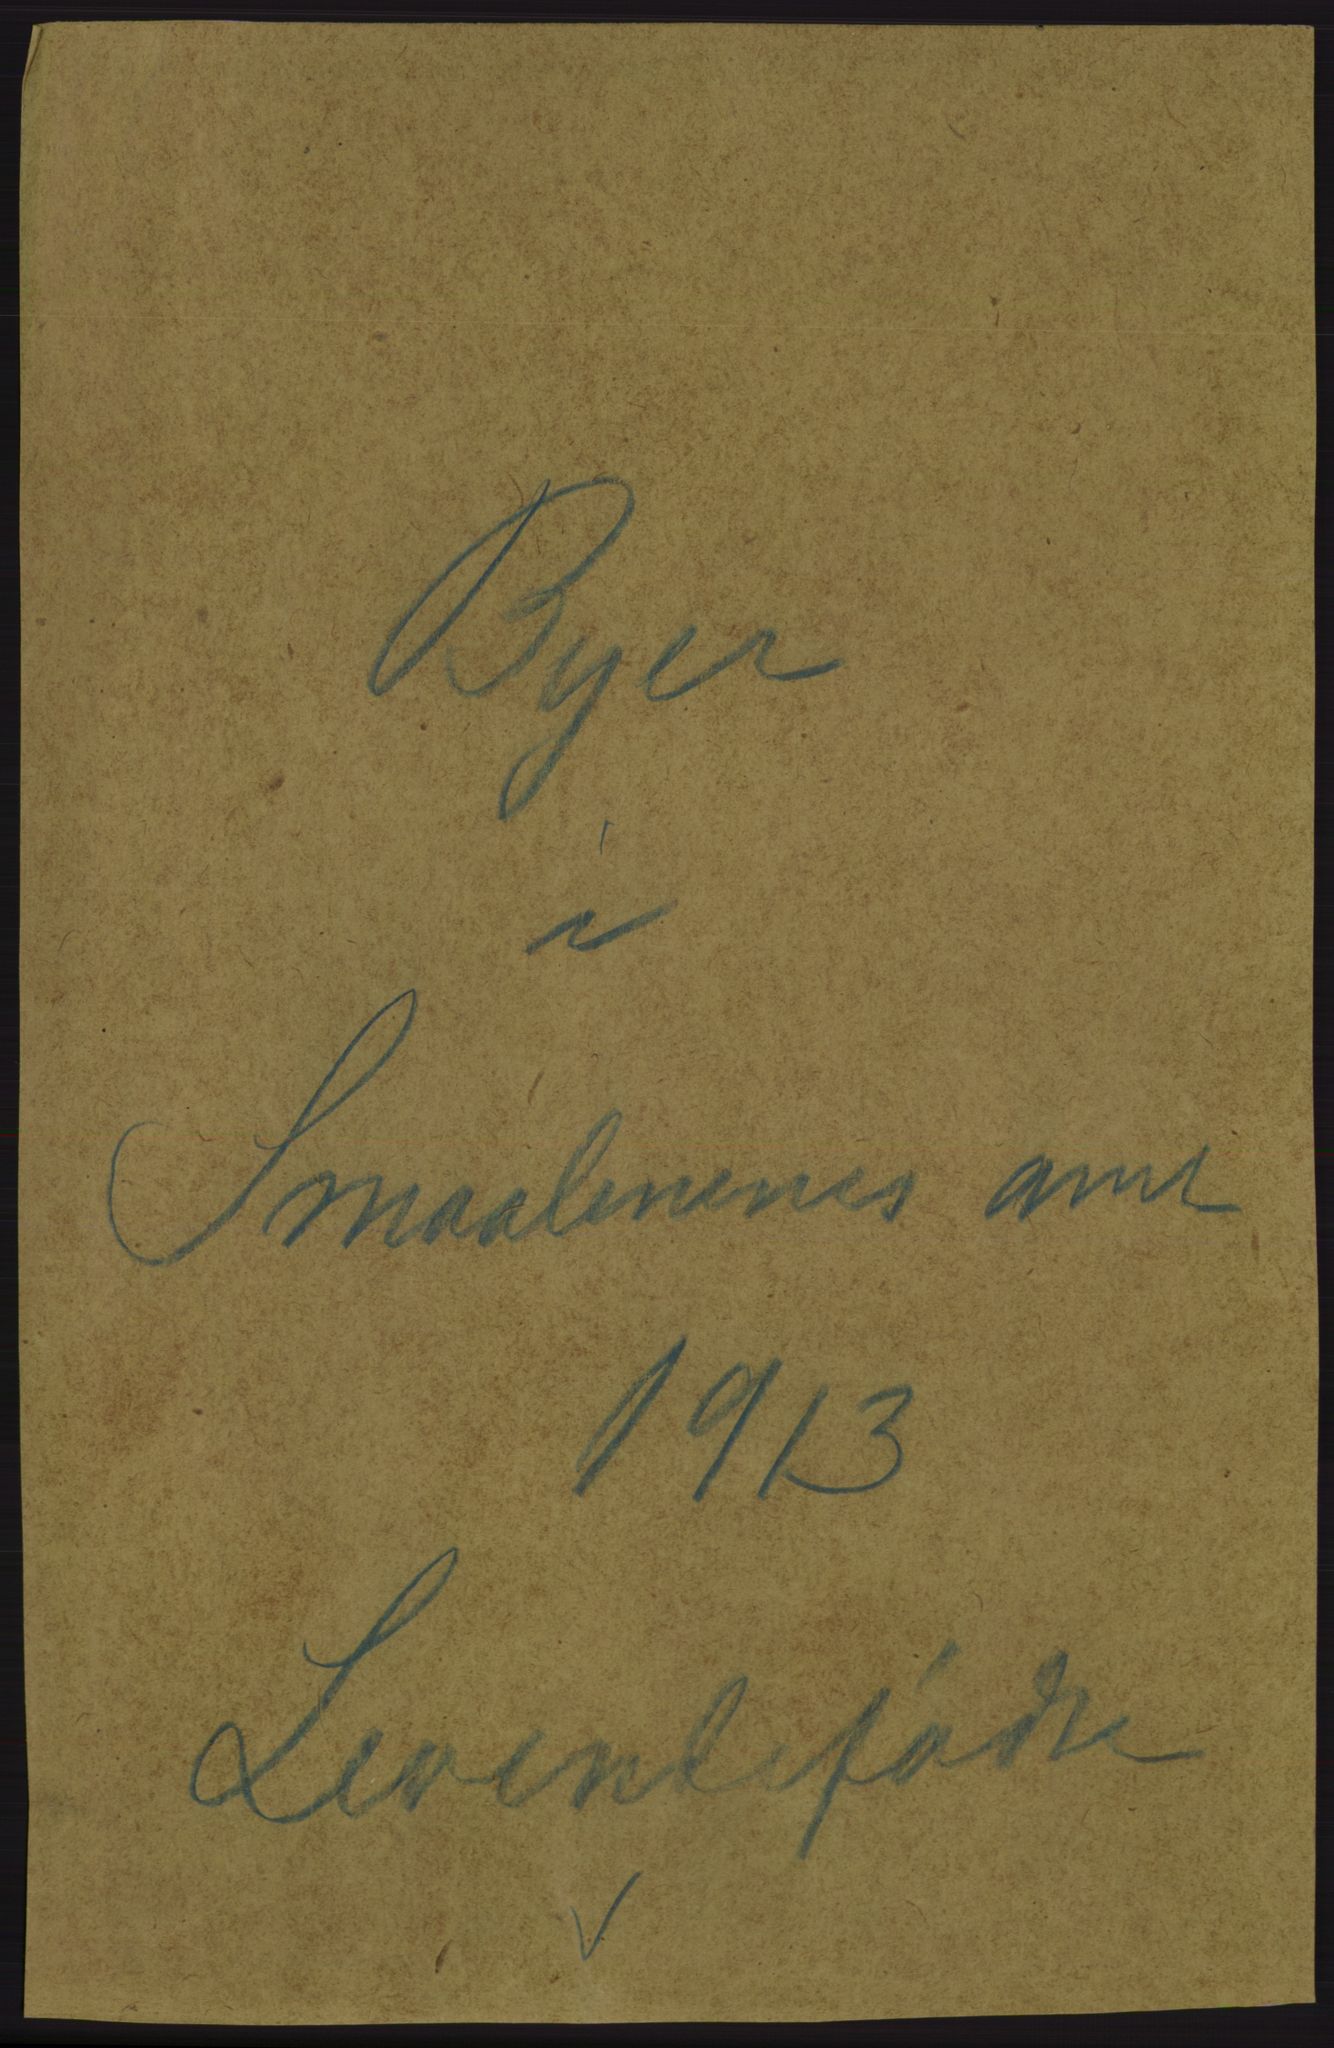 Byer
i
Smaalenenes amt
1913
Levendefødte